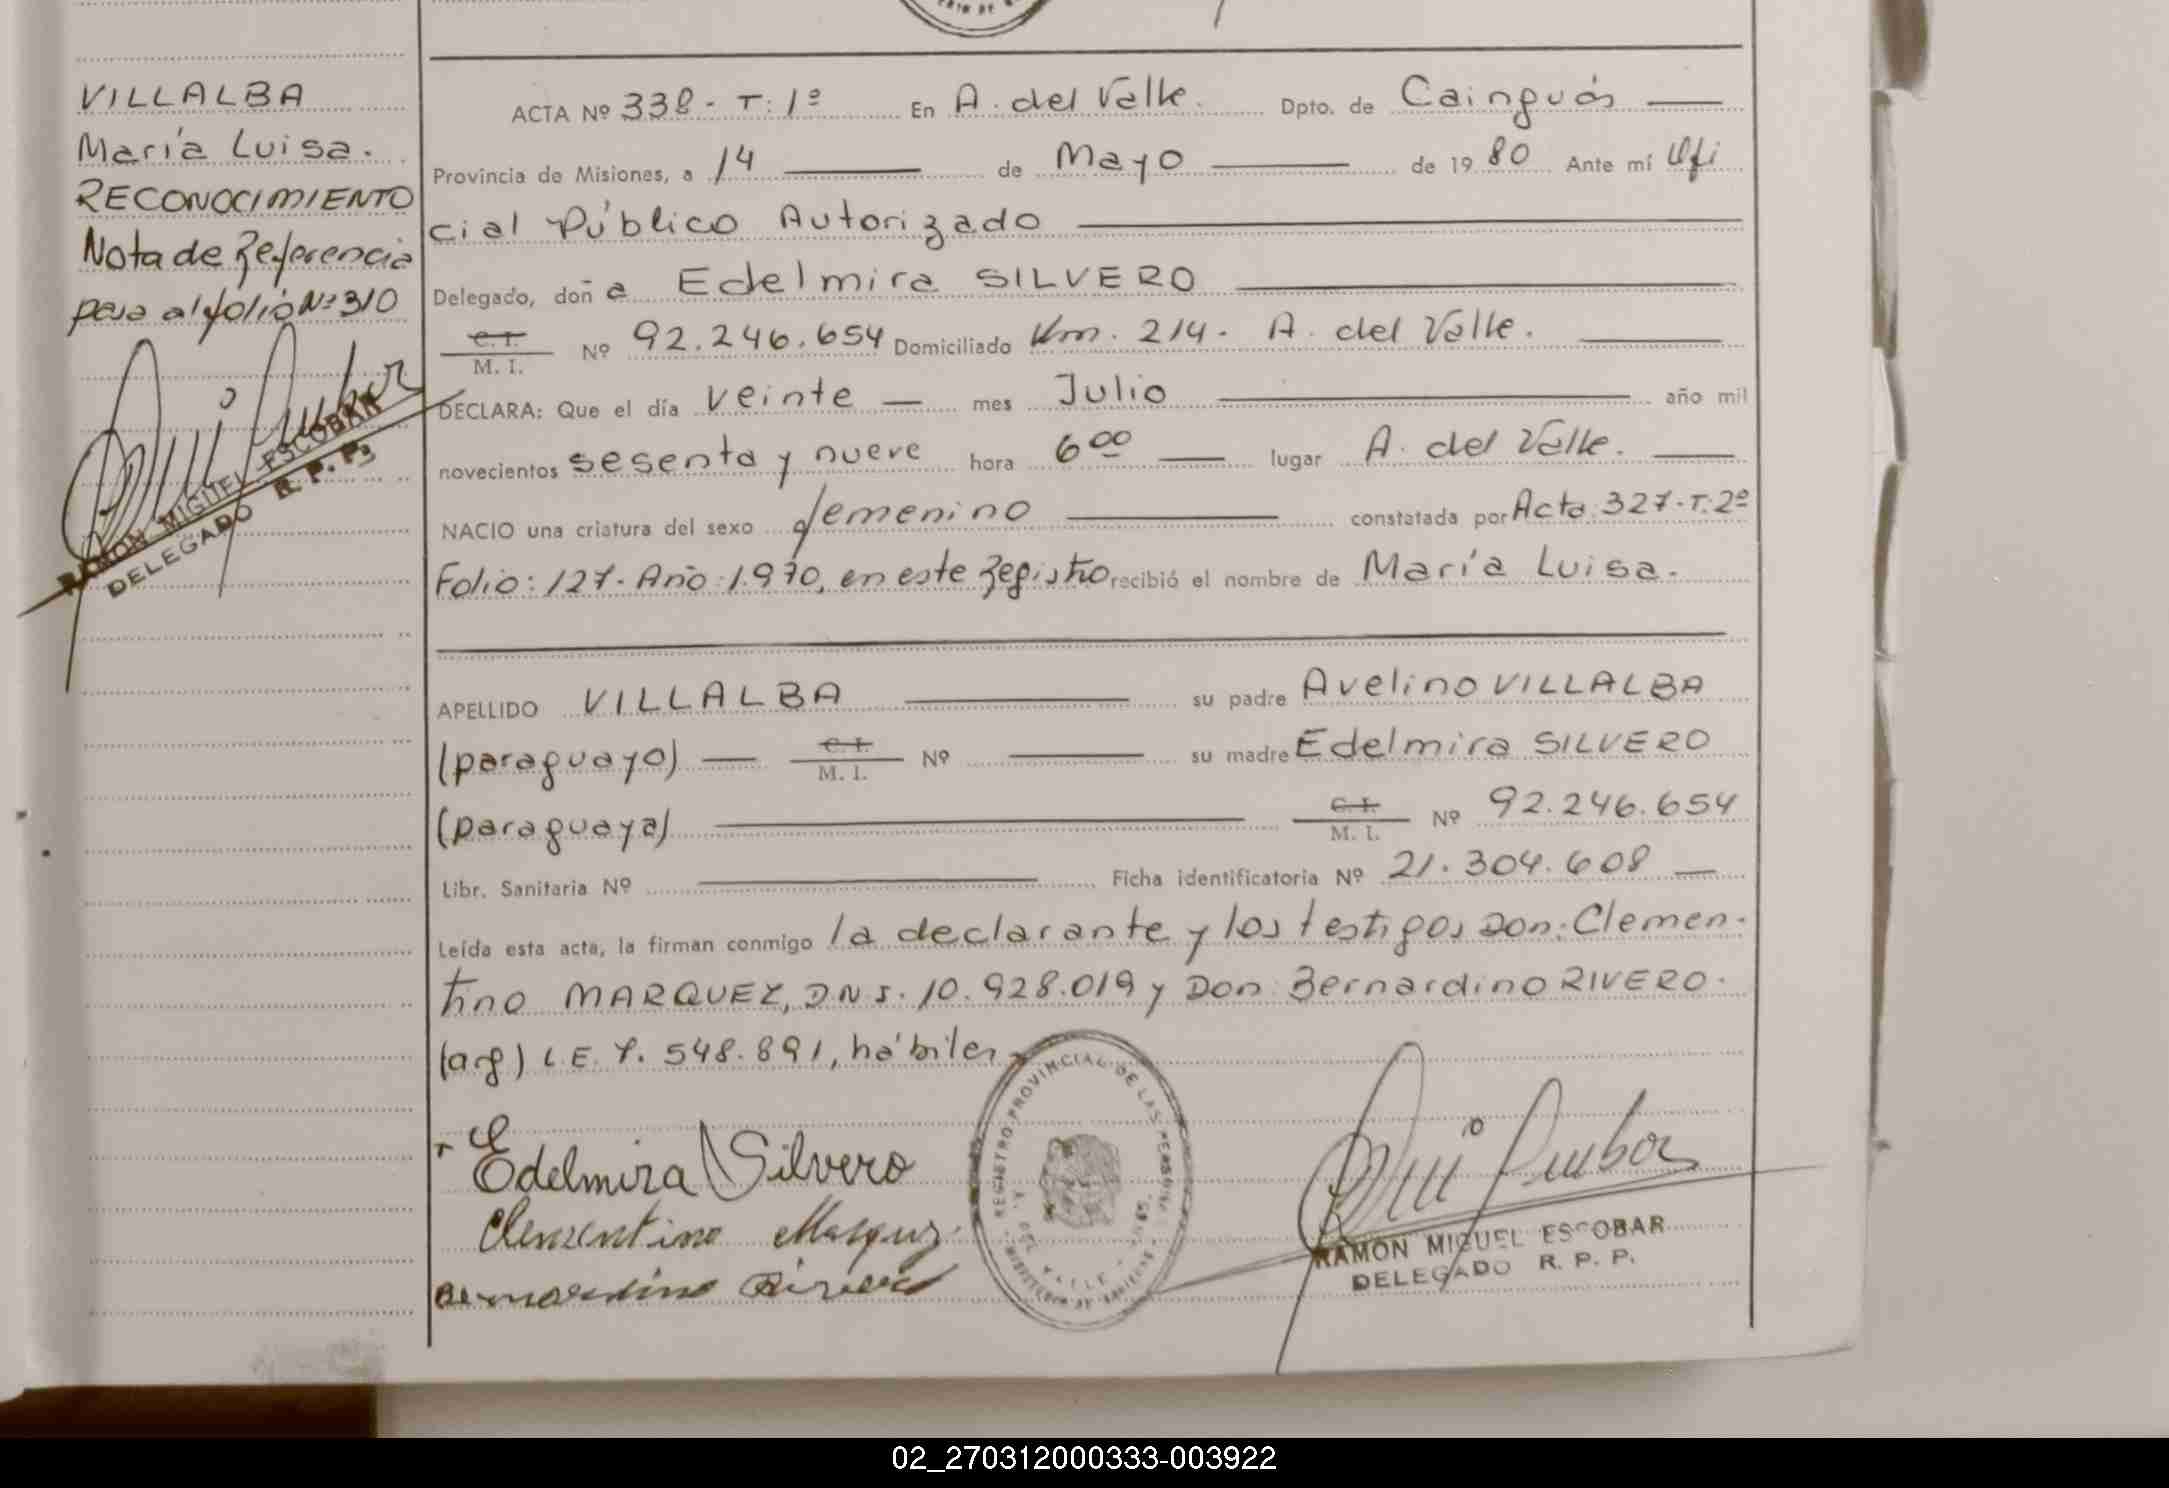 VILLALBA
María Luisa.
RECONOCIMIENTO
Nota de Referencia
pasa al folio Nº 310
RAMON MIGUEL ESCOBAR
DELEGADO R. P. P.
ACTA Nº 338 - T: 1º En A. del Valle. Dpto. de Cainguás
Provincia de Misiones, a 14 de Mayo de 1980 Ante mí Ofi
cial Público Autorizado
Delegado, doña Edelmira SILVERO
C. I.
M. I. Nº 92.246.654 Domiciliado Km. 214 - A. del Valle.
DECLARA: Que el día veinte mes Julio año mil
novecientos sesenta y nueve hora 6 00 lugar A. del Valle.
NACIO una criatura del sexo femenino constatada por Acta: 327-T:2º
Folio: 127- Año: 1.970, en este Registro recibió el nombre de María Luisa.
APELLIDO VILLALBA su padre Avelino VILLALBA
(paraguayo) C. I. M. I. Nº su madre Edelmira SILVERO
(paraguaya) C. I. M. I. Nº 92.246.654
Libr. Sanitaria Nº Ficha identificatoria Nº 21.304.608
Leída esta acta, la firman conmigo la declarante y los testigos Don: Clemen-
tino MARQUEZ, DNI. 10.928.019 y Don: Bernardino RIVERO.
(arg) L.E. 7.548.891, hábiles
Edelmira Silvero
Clementino Marquez
Bernardino Rivero
REGISTRO PROVINCIAL DE LAS PERSONAS
RAMON MIGUEL ESCOBAR
DELEGADO R. P. P.
02_270312000333-003922